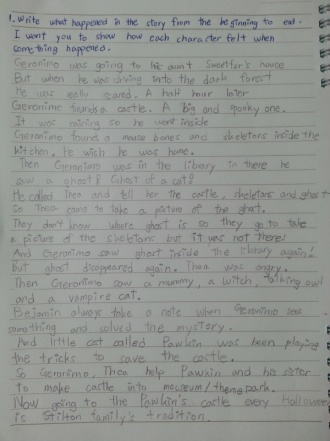 1. Write what happened in the story from the beginning to end.
I want you to show how each character felt when
something happened.
Geronimo was going to his aunt Sweetfur's house
But when he was driving into the dark forest
He was really scared. A half hour later
Geronimo found a castle. A big and spooky one.
It was raining so he went inside
Geronimo found a mouse bones and skeletons inside the
kitchen. He wish he was home.
Then Geronimo was in the library in there he
saw a ghost! Ghost of a cat!
He called Thea and tell her the castle, skeletons and ghost
So Thea came to take a picture of the ghost.
They don't know where ghost is so they go to take
a picture of the skeletons but it was not there!
And Geronimo saw ghost inside the library again!
But ghost disappeared again. Thea was angry.
Then Geronimo saw a mummy, a witch, talking owl
and a vampire cat.
Benjamin always take a note when Geronimo saw
something and solved the mystery.
And little cat called Pawkin was been playing
the tricks to save the castle.
So Geronimo, Thea help Pawkin and his sister
to make castle into meuseum/theme park.
Now going to the Pawkin's castle every Halloween
is Stilton family's tradition